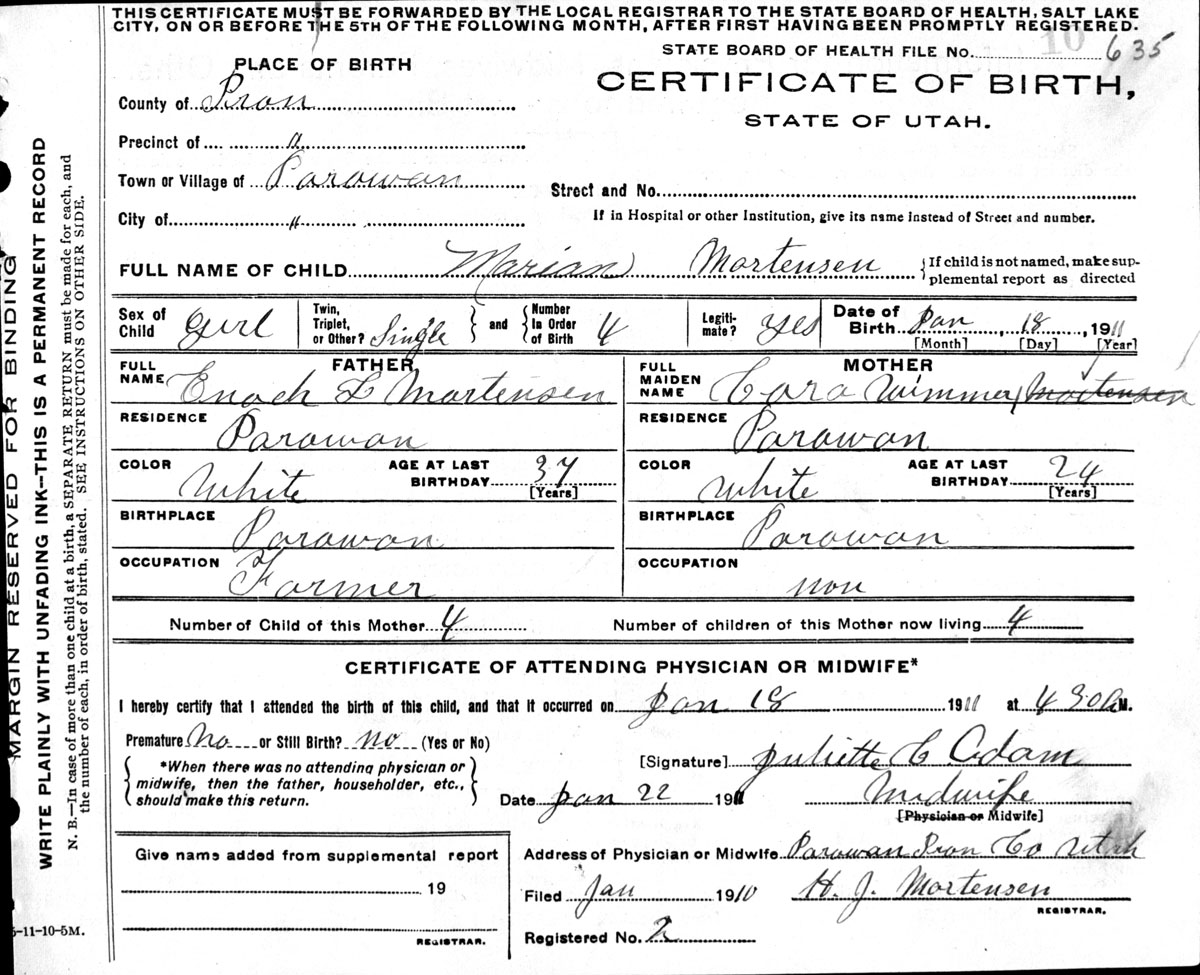 THIS CERTIFICATE MUST BE FORWARDED BY THE LOCAL REGISTRAR TO THE STATE BOARD OF HEALTH, SALT LAKE
CITY, ON OR BEFORE THE 5TH OF THE FOLLOWING MONTH, AFTER FIRST HAVING BEEN PROMPTLY REGISTERED.
10
STATE BOARD OF HEALTH FILE No. 635
PLACE OF BIRTH
CERTIFICATE OF BIRTH,
STATE OF UTAH.
County of Iron
Precinct of "
Town or Village of Parowan
Street and No.
City of "
If in Hospital or other Institution, give its name instead of Street and number.
FULL NAME OF CHILD Marian Mortensen {If child is not named, make sup-
plemental report as directed
Sex of Child Gurl
Twin, Triplet, or Other? Single } and { Number In Order of Birth 4
Legiti-mate? Yes
Date of Birth Jan, 18, 1911
[Month] [Day] [Year]
FATHER
FULL NAME Enoch L Mortensen
MOTHER
FULL MAIDEN NAME Cora Wimmer Mortensen
RESIDENCE Parowan
RESIDENCE Parowan
COLOR White AGE AT LAST BIRTHDAY 37 [Years]
COLOR White AGE AT LAST BIRTHDAY 24 [Years]
BIRTHPLACE Parowan
BIRTHPLACE Parowan
OCCUPATION Farmer
OCCUPATION non
Number of Child of this Mother 4 Number of children of this Mother now living 4
CERTIFICATE OF ATTENDING PHYSICIAN OR MIDWIFE*
I hereby certify that I attended the birth of this child, and that it occurred on Jan 18 1911 at 4 30 A M.
Premature No or Still Birth? no (Yes or No)
*When there was no attending physician or
midwife, then the father, householder, etc.,
should make this return.
[Signature] Juliette C Adam
Date Jan 22 1911 Midwife
[Physician or Midwife]
Give name added from supplemental report
19
REGISTRAR.
Address of Physician or Midwife Parowan Iron Co Utah
Filed Jan 1910 H. J. Mortensen
REGISTRAR.
Registered No. 2
5-11-10-5M.
MARGIN RESERVED FOR BINDING
WRITE PLAINLY WITH UNFADING INK—THIS IS A PERMANENT RECORD
N. B.—In case of more than one child at a birth, a SEPARATE RETURN must be made for each, and
the number of each, in order of birth, stated. SEE INSTRUCTIONS ON OTHER SIDE.